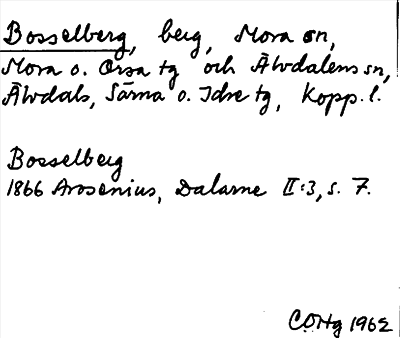 Bosselberg, berg, Mora sn,
Mora o. Orsa tg och Älvdalens sn,
Älvdals, Särna o. Idre tg, Kopp. l.
Bosselberg
1866 Arosenius, Dalarne II:3, s. 7.
COHg 1962